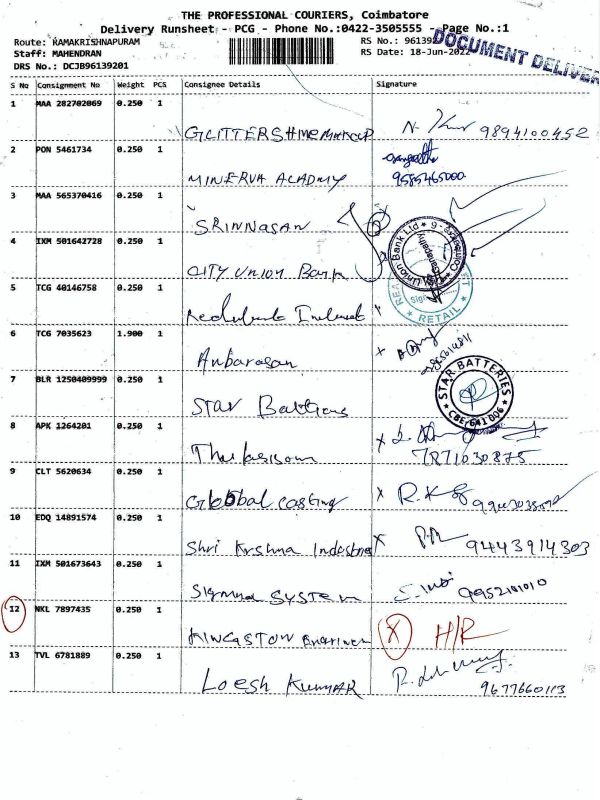 THE PROFESSIONAL COURIERS, Coimbatore
Delivery Runsheet - PCG - Phone No.:0422-3505555 - Page No.:1
Route: RAMAKRISHNAPURAM
RS No.: 96139
Staff: MAHENDRAN
RS Date: 18-Jun-2022
DOCUMENT DELIVER
DRS No.: DCJB96139201
S No Consignment No Weight PCS Consignee Details Signature
1 MAA 282702069 0.250 1
9894100452
2 PON 5461734 0.250 1 MINERVA ACADMY
9585465000
3 MAA 565370416 0.250 1 SRINNASAN
4 IXM 501642728 0.250 1 CITY UNION Bank
Union Bank Ltd
5 TCG 40146758 0.250 1
RETAIL
6 TCG 7035623 1.900 1 Anbarasan
7 BLR 1250409999 0.250 1 STAR Battries
STAR BATTERIES
CBE 641 006
8 APK 1264201 0.250 1 X
9 CLT 5620634 0.250 1 Globbal casting X
10 EDQ 14891574 0.250 1 Shri Krshna X 9443914303
11 IXM 501673643 0.250 1 Sigmma SYSTEM 9952101010
12 NKL 7897435 0.250 1 KINGASTON X H/R
13 TVL 6781889 0.250 1 Loesh Kummar
9677660113